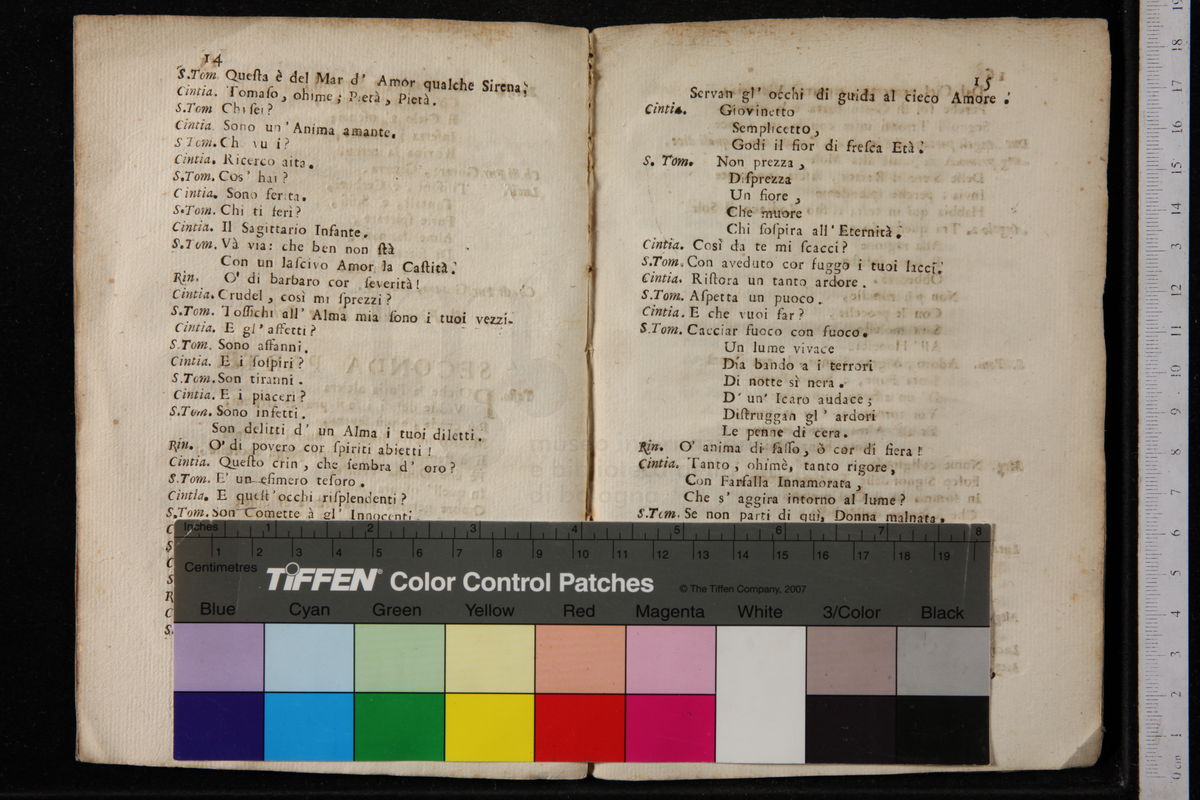 14
S.Tom. Queſta è del Mar d' Amor qualche Sirena;
Cintia. Tomaſo, ohime; Pietà, Pietà.
S.Tom Chi ſei?
Cintia. Sono un'Anima amante.
S Tom. Ch vu i?
Cintia. Ricerco aita.
S.Tom. Cos' hai?
Cintia. Sono ferita.
S.Tom. Chi ti ferì?
Cintia. Il Sagittario Infante.
S.Tom. Và via: che ben non ſtà
Con un laſcivo Amor la Caſtità.
Rin. O' di barbaro cor ſeverità!
Cintia. Crudel, così mi ſprezzi?
S.Tom. Toſſichi all' Alma mia ſono i tuoi vezzi.
Cintia. E gl' affetti?
S.Tom. Sono affanni.
Cintia. E i ſoſpiri?
S.Tom. Son tiranni.
Cintia. E i piaceri?
S.Tom. Sono infetti.
Son delitti d' un Alma i tuoi diletti.
Rin. O' di povero cor ſpiriti abietti!
Cintia. Queſto crin, che ſembra d' oro?
S.Tom. E' un efimero teſoro.
Cintia. E queſt'occhi riſplendenti?
S.Tom. Son Comette à gl' Innocenti.
15
Servan gl' occhi di guida al cieco Amore.
Cintia. Giovinetto
Semplicetto,
Godi il fior di freſca Età.
S. Tom. Non prezza,
Diſprezza
Un fiore,
Che muore
Chi ſoſpira all'Eternità.
Cintia. Così da te mi ſcacci?
S.Tom. Con aveduto cor fuggo i tuoi lacci.
Cintia. Riſtora un tanto ardore.
S.Tom. Aſpetta un puoco.
Cintia. E che vuoi far?
S.Tom. Cacciar fuoco con fuoco.
Un lume vivace
Dia bando a i terrori
Di notte sì nera.
D' un' Icaro audace;
Diſtruggan gl' ardori
Le penne di cera.
Rin. O' anima di ſaſſo, ò cor di fiera!
Cintia. Tanto, ohimè, tanto rigore,
Con Farfalla Innamorata,
Che s' aggira intorno al lume?
S.Tom. Se non parti di quì, Donna malnata.
Inches 1 2 3 4 5 6 7 8
Centimetres 1 2 3 4 5 6 7 8 9 10 11 12 13 14 15 16 17 18 19
TIFFEN® Color Control Patches © The Tiffen Company, 2007
Blue Cyan Green Yellow Red Magenta White 3/Color Black